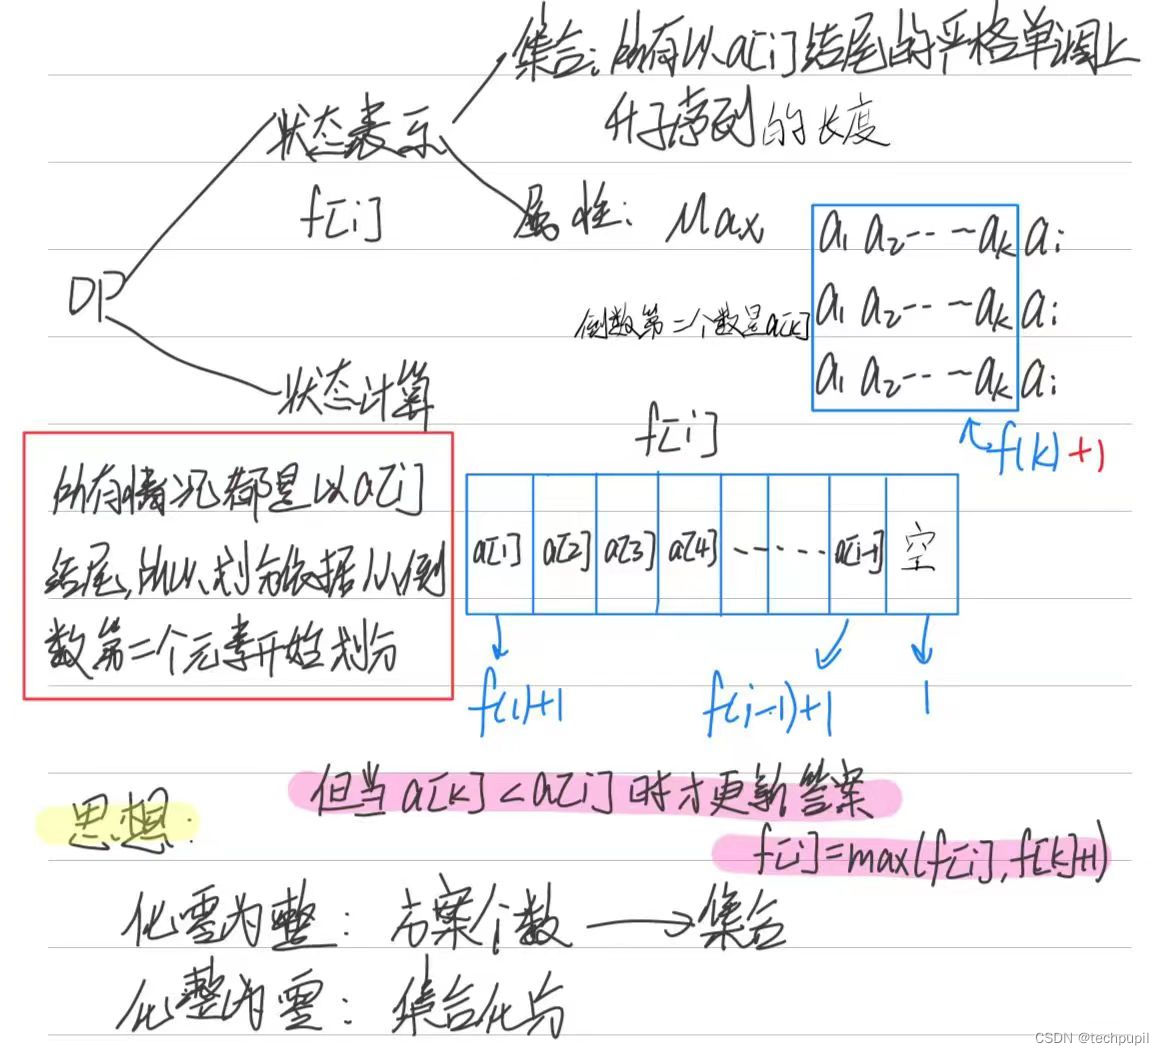 集合：所有以a[i]结尾的严格单调上
升子序列的长度
状态表示
f[i]
属性：Max
a₁ a₂-- ~aₖ aᵢ
DP
倒数第二个数是a[k]
a₁ a₂-- ~aₖ aᵢ
a₁ a₂-- ~aₖ aᵢ
状态计算
f(k)+1
f[i]
所有情况都是以a[i]
结尾，所以划分依据从倒
数第二个元素开始划分
a[1] a[2] a[3] a[4] ------ a[i-1] 空
f(1)+1 f(i-1)+1 1
但当a[k]<a[i]时才更新答案
思想：
f[i]=max(f[i],f[k]+1)
化零为整：方案个数 → 集合
化整为零：集合化分
CSDN @techpupil